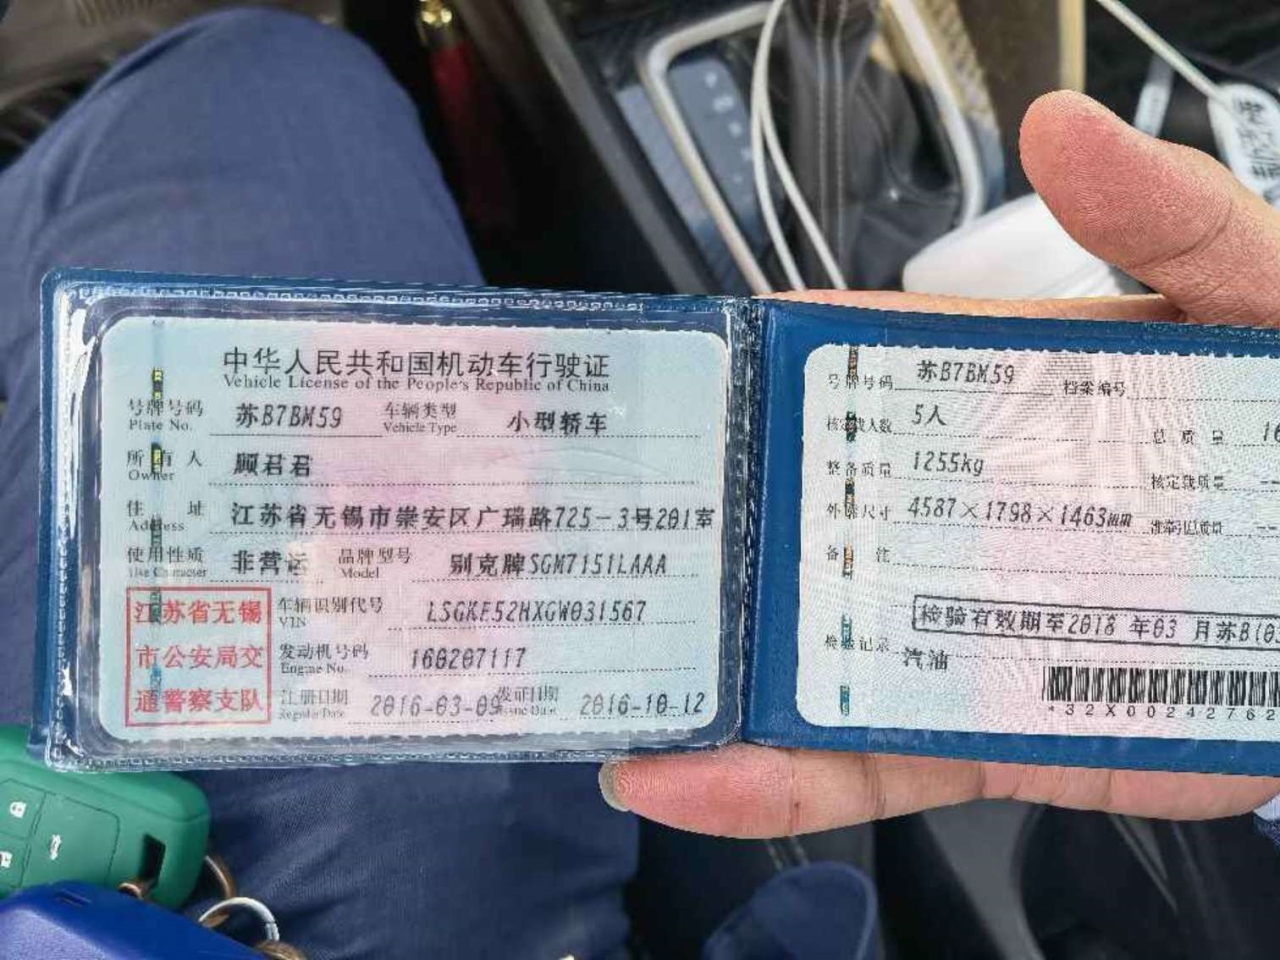 中华人民共和国机动车行驶证
Vehicle License of the People's Republic of China
号牌号码 苏B7BM59 车辆类型 小型轿车
Plate No. Vehicle Type
所有人 顾君君
Owner
住 址 江苏省无锡市崇安区广瑞路725-3号201室
Address
使用性质 非营运 品牌型号 别克牌SGM7151LAAA
Use Character Model
江苏省无锡
市公安局交
通警察支队
车辆识别代号 LSGKE52HXGW031567
VIN
发动机号码 160207117
Engine No.
注册日期 2016-03-09 发证日期 2016-10-12
Register Date Issue Date
号牌号码 苏B7BM59 档案编号
核定载人数 5人 总质量
整备质量 1255kg 核定载质量 --
外廓尺寸 4587×1798×1463mm 准牵引总质量 --
备 注
检验有效期至2018年03月苏B(0
检验记录
汽油
*32X00242762